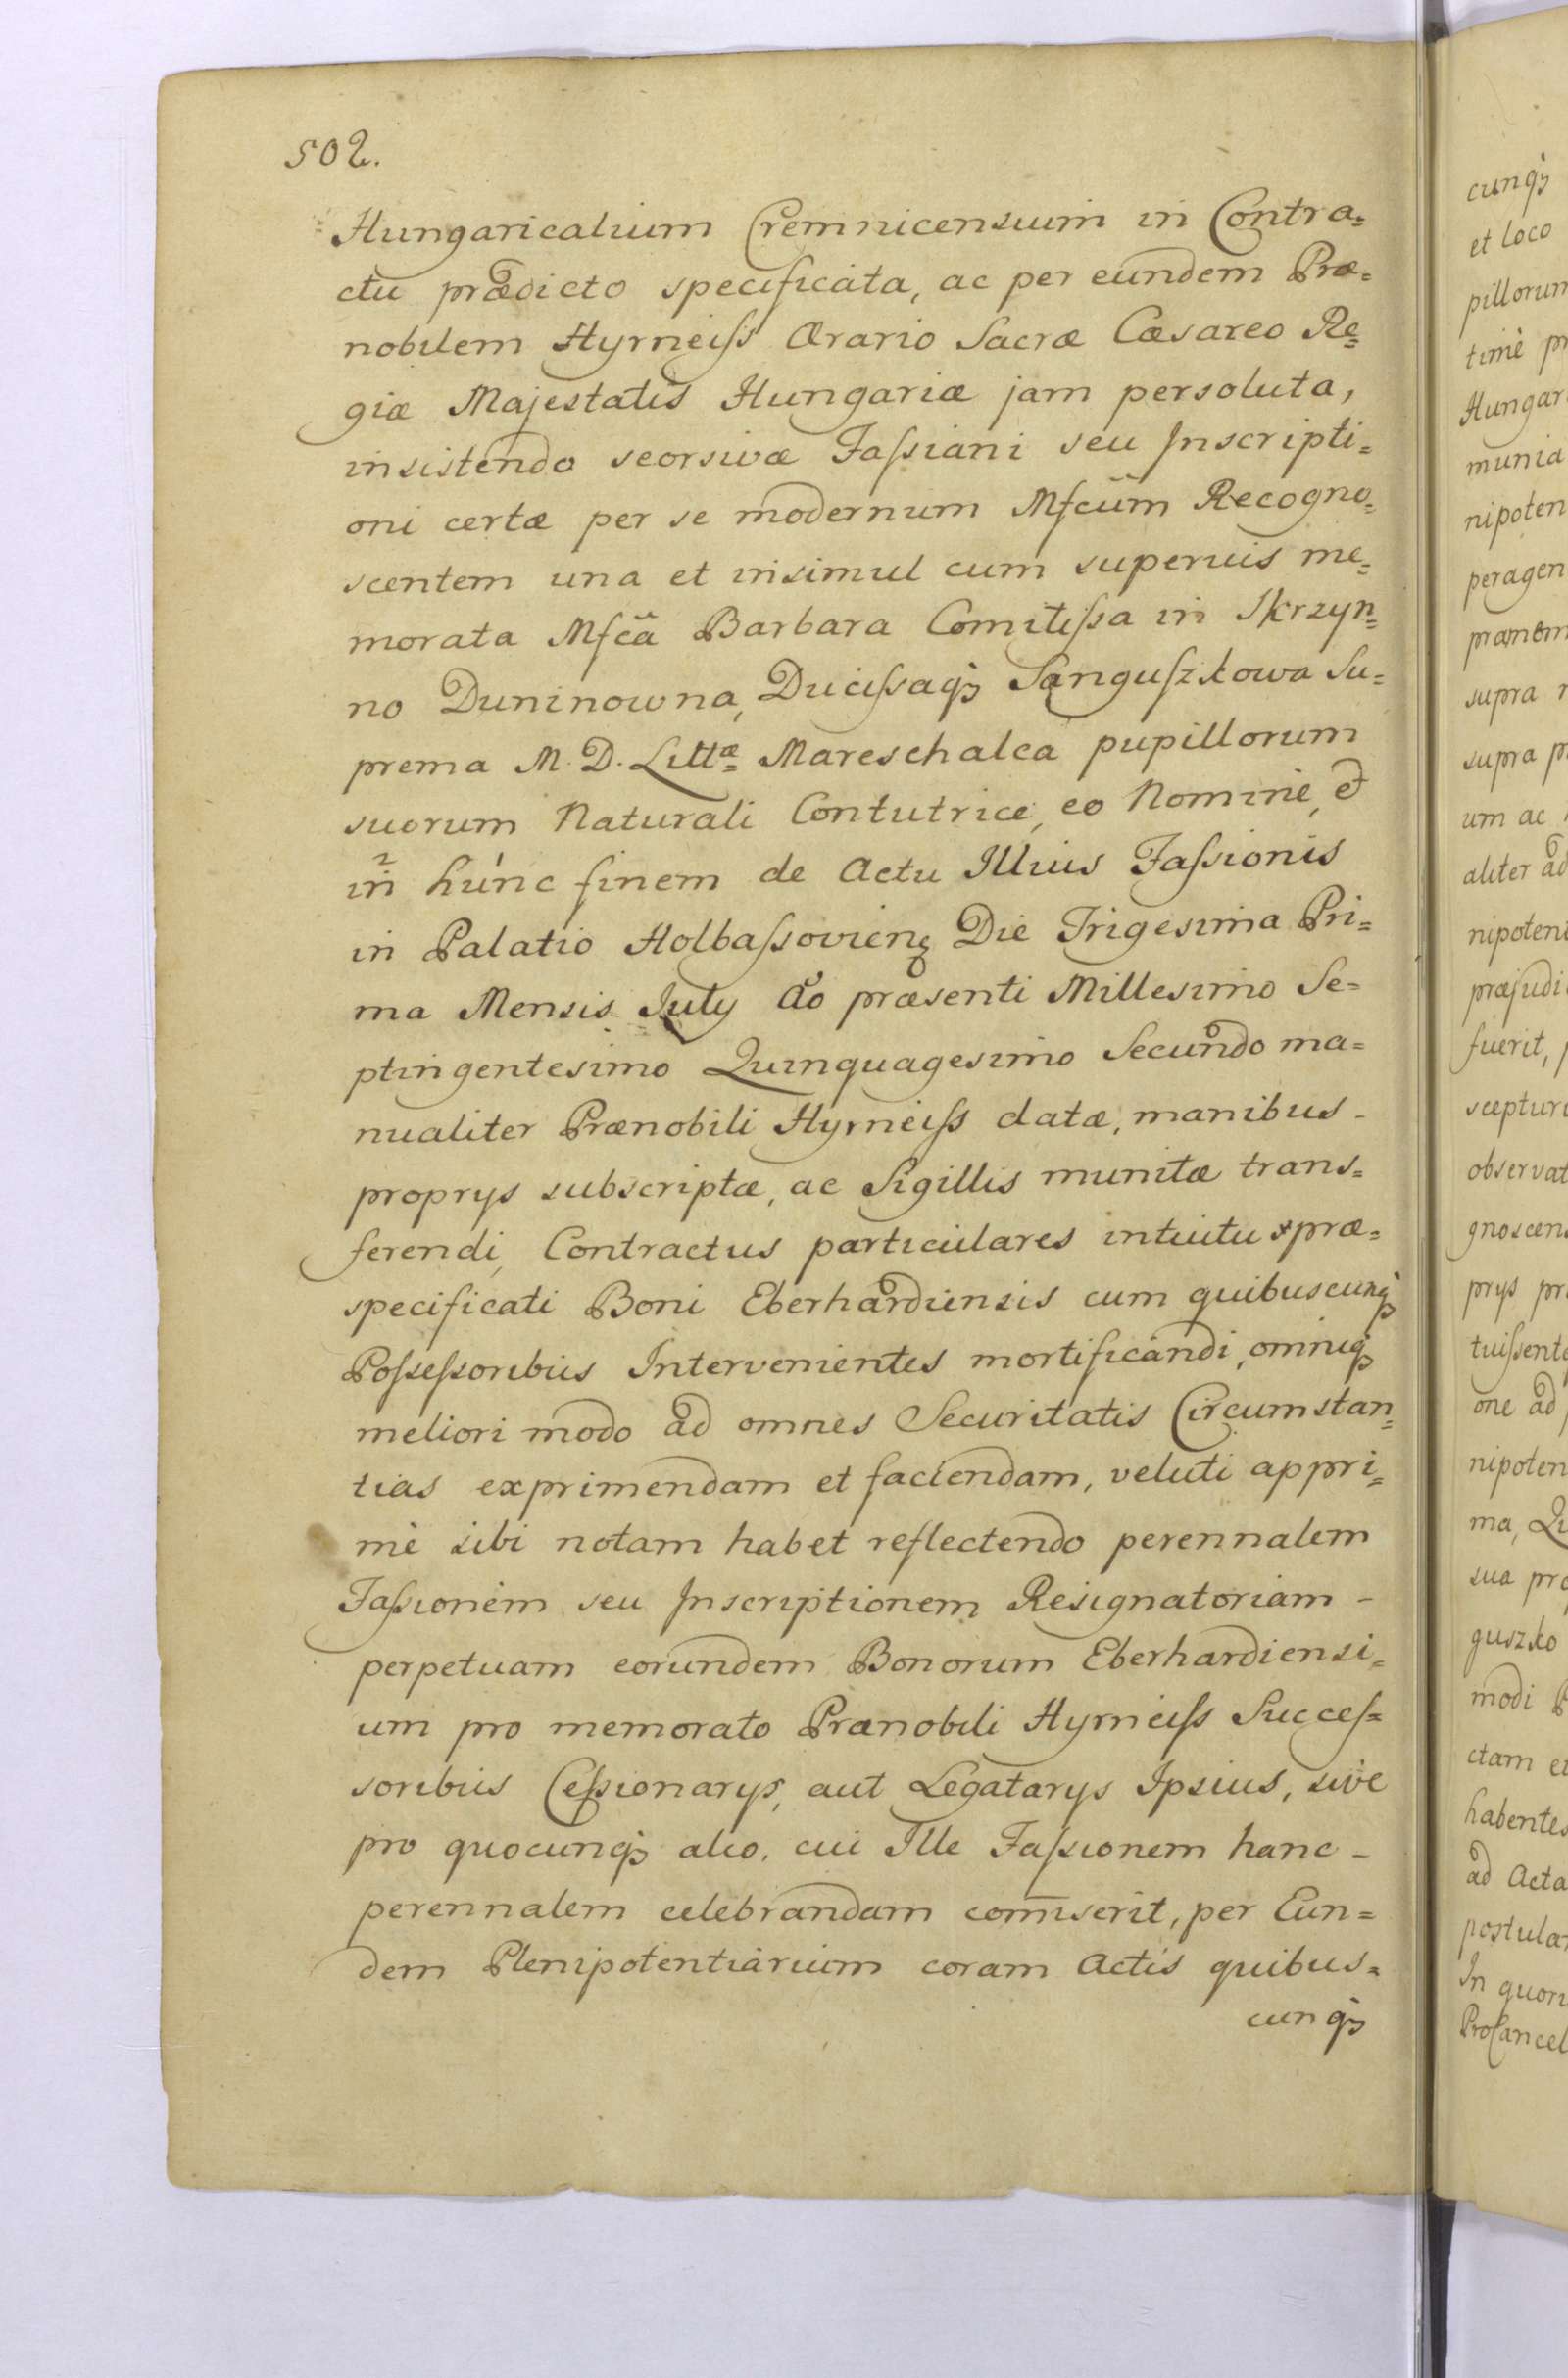 502.
Hungaricalium Cremnicensium in Contra=
ctu prædicto specificata, ac per eundem Præ=
nobilem Hyrneiss Ærario Sacræ Cæsareo Re=
giæ Majestatis Hungariæ jam persoluta,
insistendo seorsivæ Fassiani seu Inscripti=
oni certæ per se modernum Mfcum Recogno=
scentem una et insimul cum superius me=
morata Mfca Barbara Comitissa in Skrzyn=
no Duninowna, Ducissaqꝫ Sanguszkowa Su=
prema M. D. Littæ Mareschalca pupillorum
suorum Naturali Contutrice, eo Nomine, et
in hunc finem de Actu Illius Fassionis
in Palatio Holbassovienꝫ Die Trigesima Pri=
ma Mensis July Ao præsenti Millesimo Se=
ptingentesimo Quinquagesimo Secundo ma=
nualiter Prænobili Hyrneiss datæ, manibus -
proprys subscriptæ, ac Sigillis munitæ trans=
ferendi, Contractus particulares intuitu præ=
specificati Boni Eberhardiensis cum quibuscunqꝫ
Possessoribus Intervenientes mortificandi, omniqꝫ
meliori modo ad omnes Securitatis Circumstan=
tias exprimendam et faciendam, veluti appri=
mè sibi notam habet reflectendo perennalem
Fassionem seu Inscriptionem Resignatoriam -
perpetuam eorundem Bonorum Eberhardiensi=
um pro memorato Prænobili Hyrneiss Succes=
soribus Cessionarys, aut Legatarys Ipsius, sive
pro quocunqꝫ alio, cui Ille Fassionem hanc -
perennalem celebrandam com̅iserit, per Eun=
dem Plenipotentiarium coram Actis quibus=
cunqꝫ
cunqꝫ
et loco
pillorum
timè
Hungar
munia
nipoten
peragen
supra
supra
um ac
aliter ad
nipoten
præjudi
fuerit,
sceptur
observat
gnoscen
prys
tuissent
one ad
nipoten
ma,
sua
guszko
modi
ctam et
habentes
ad Acta
postula
In quor
ProCancel